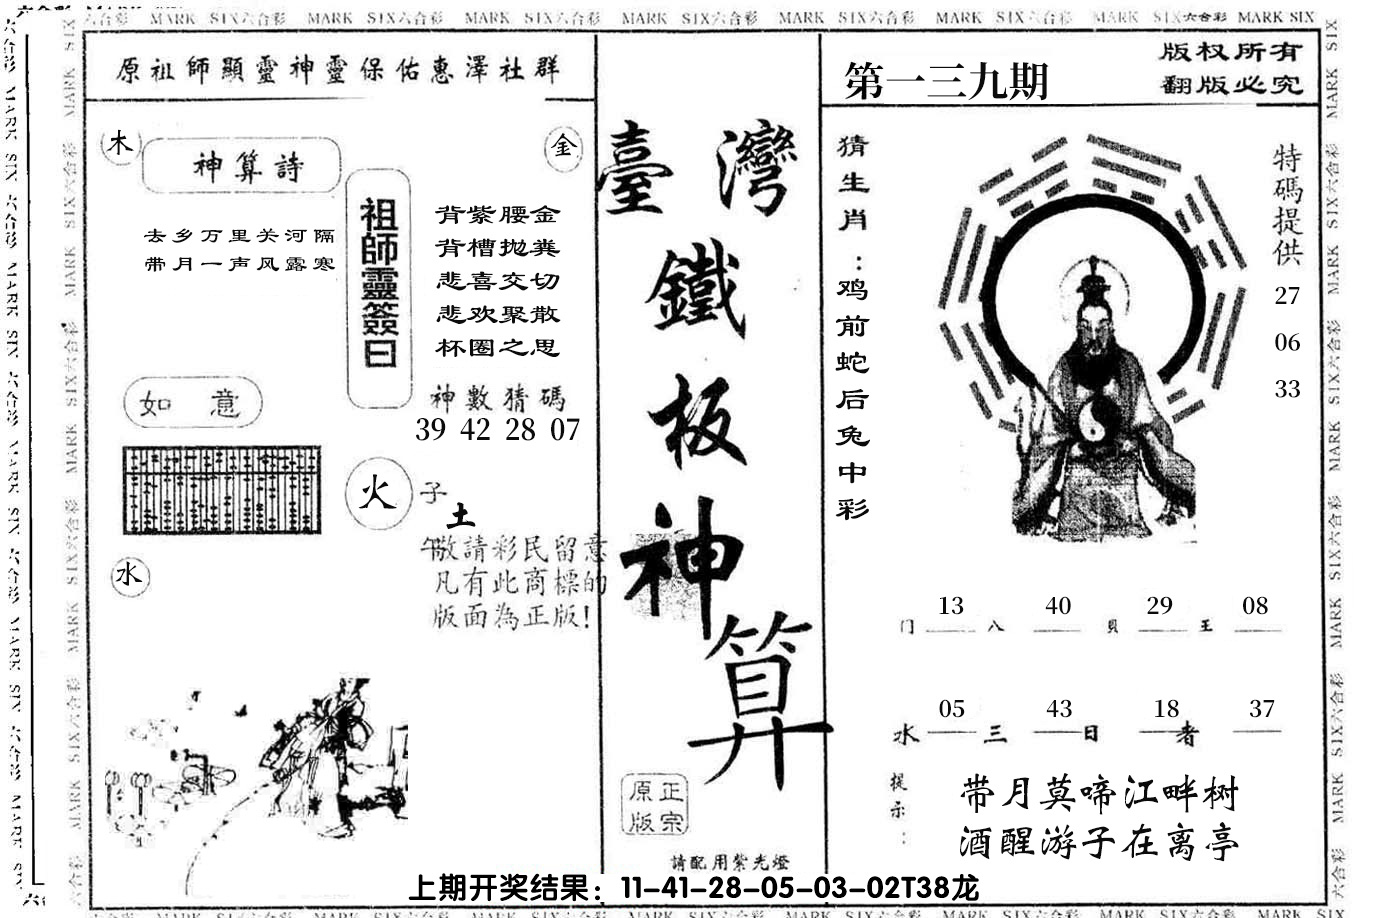 MARK SIX六合彩 MARK SIX六合彩 MARK SIX六合彩 MARK SIX六合彩 MARK SIX六合彩 MARK SIX六合彩 MARK SIX六合彩 MARK SIX
原祖師顯靈神靈保佑惠澤社群
木
金
神算詩
去乡万里关河隔
带月一声风露寒
祖師靈簽曰
背紫腰金
背槽抛粪
悲喜交切
悲欢聚散
杯圈之思
神數猜碼
39 42 28 07
如意
火
子
土
午
水
敬請彩民留意
凡有此商標的
版面為正版!
臺灣
鐵
板
神
算
正宗
原版
請配用紫光燈
第一三九期
版权所有
翻版必究
猜生肖：鸡前蛇后兔中彩
特碼提供
27
06
33
13 40 29 08
门 八 貝 王
05 43 18 37
水 三 日 者
提示：
带月莫啼江畔树
酒醒游子在离亭
上期开奖结果：11-41-28-05-03-02T38龙